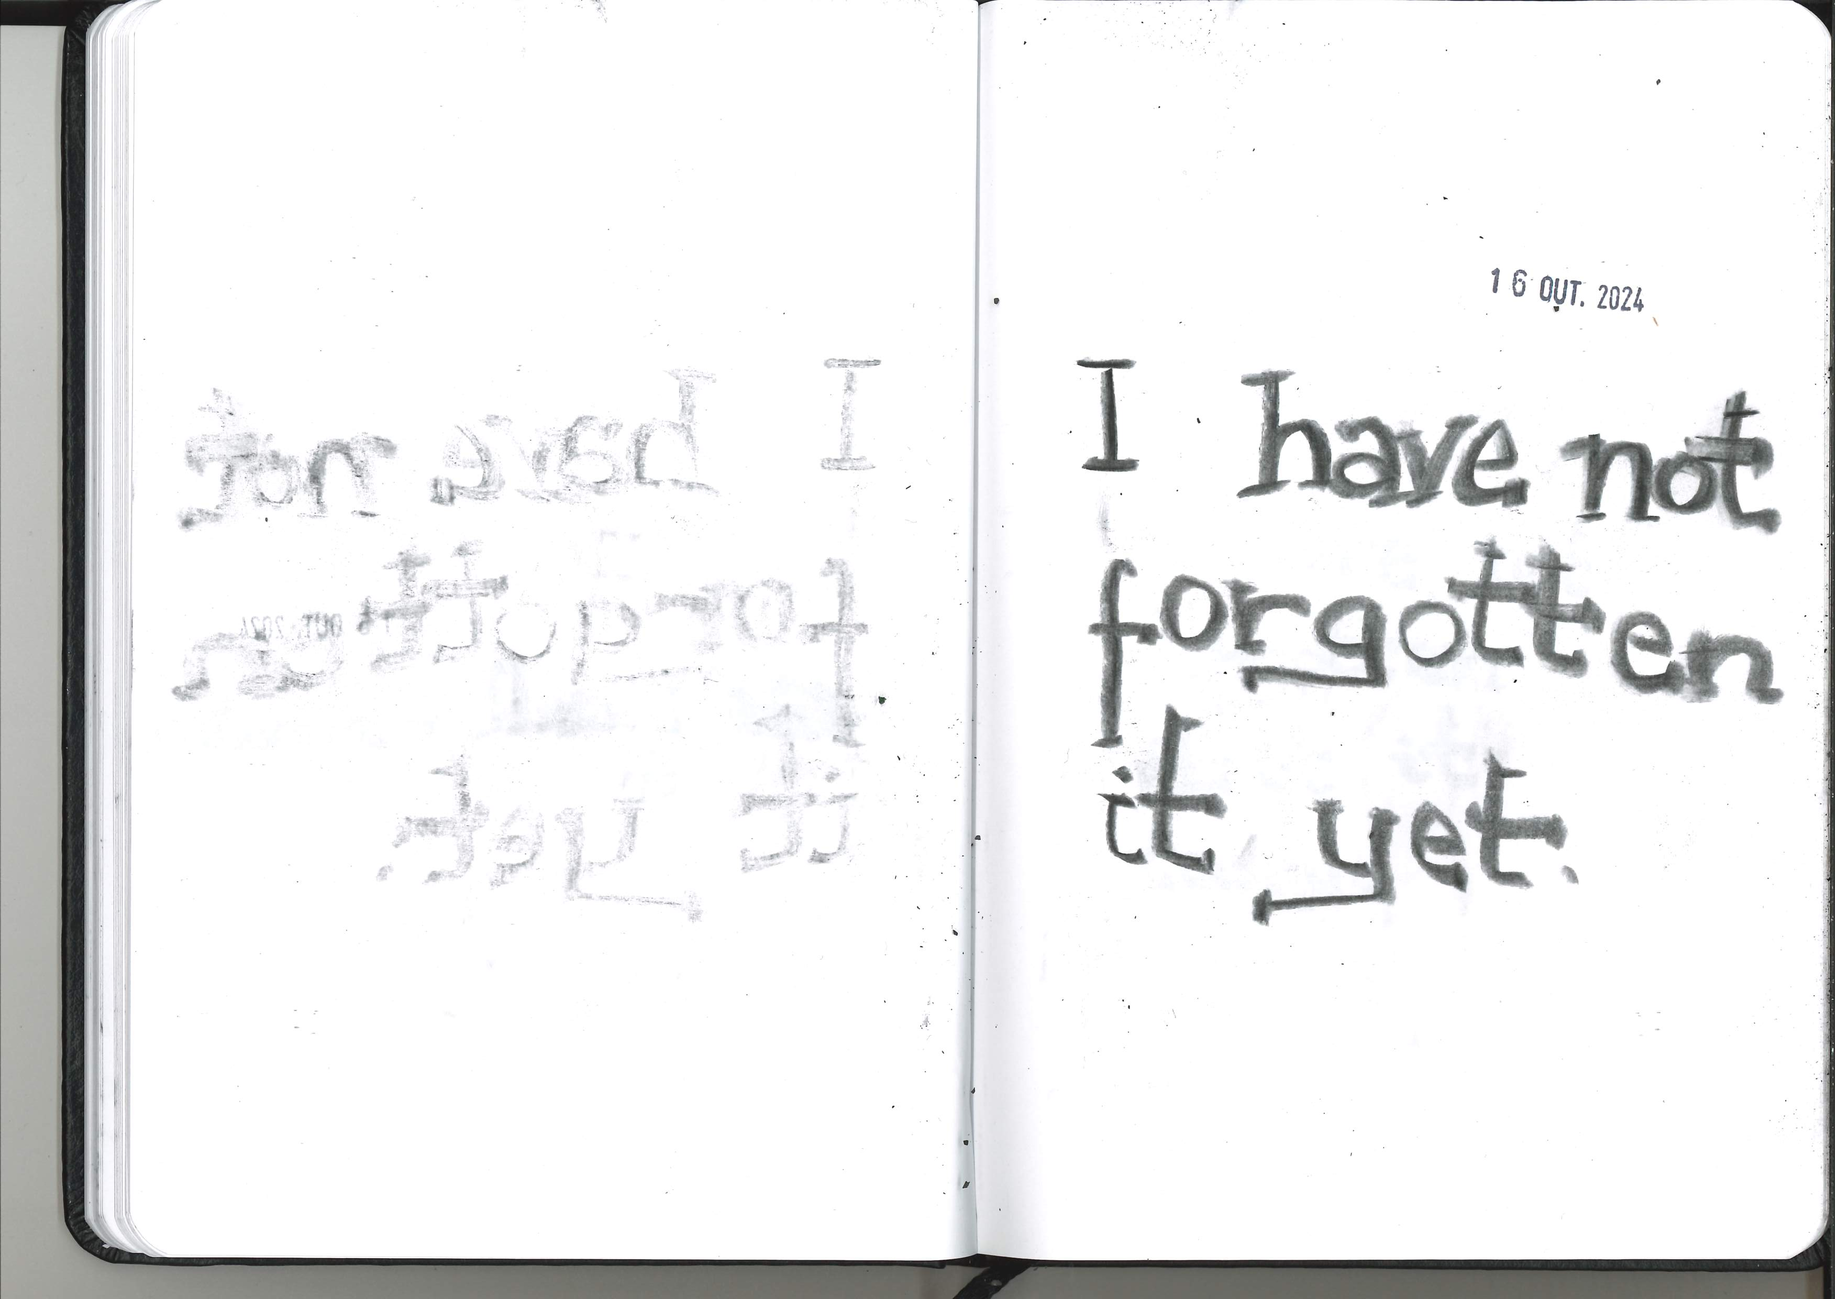 16 OUT. 2024
I have not
forgotten
it yet.